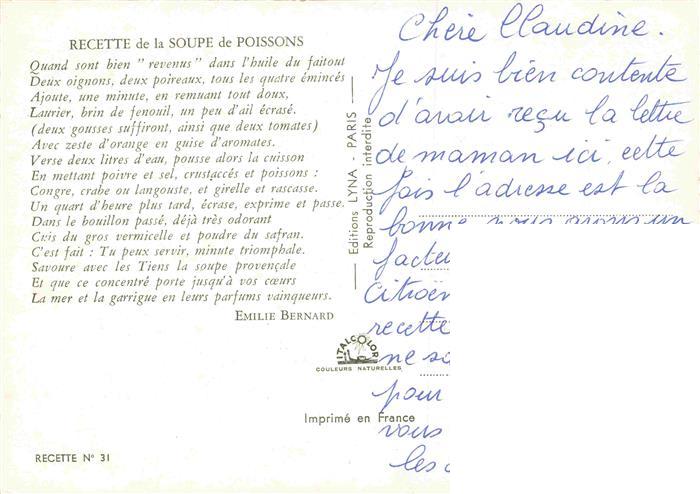 RECETTE de la SOUPE de POISSONS
Quand sont bien " revenus " dans l'huile du faitout
Deux oignons, deux poireaux, tous les quatre émincés
Ajoute, une minute, en remuant tout doux,
Laurier, brin de fenouil, un peu d'ail écrasé.
(deux gousses suffiront, ainsi que deux tomates)
Avec zeste d'orange en guise d'aromates.
Verse deux litres d'eau, pousse alors la cuisson
En mettant poivre et sel, crustaccés et poissons :
Congre, crabe ou langouste, et girelle et rascasse.
Un quart d'heure plus tard, écrase, exprime et passe.
Dans le bouillon passé, déjà très odorant
Cuis du gros vermicelle et poudre du safran.
C'est fait : Tu peux servir, minute triomphale.
Savoure avec les Tiens la soupe provençale
Et que ce concentré porte jusqu'à vos cœurs
La mer et la garrigue en leurs parfums vainqueurs.
EMILIE BERNARD
RECETTE N° 31
Editions LYNA - PARIS
Reproduction interdite
ITALCOLOR
COULEURS NATURELLES
Imprimé en France
Chère Claudine.
Je suis bien contente
d'avoir reçu la lettre
de maman ici, cette
fois l'adresse est la
bonne nous avons un
facteu
Citroën
recette
ne so
pour
vous
les